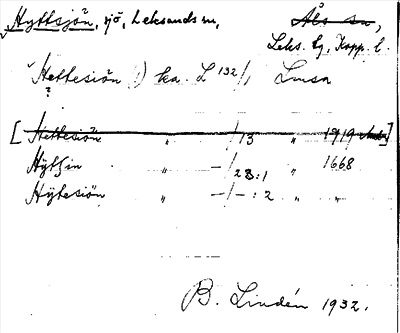 Hyttsjön, sjö, Leksands sn, Åls sn,
Leks. tg, Kopp. l.
Hettesiön (!) ka. L 132/1 Lmsa
?
[Hettesiön " /13 " 1719]
Hÿttsin " —/23:1 " 1668
Hÿtesiön " —/—:2 " "
B. Lindén 1932.